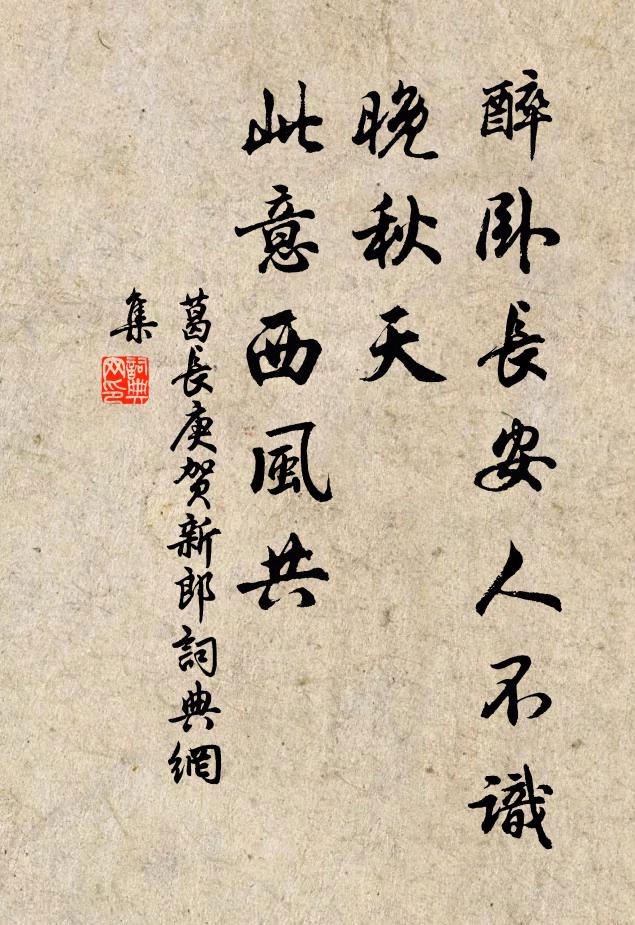 醉卧長安人不識
晚秋天
此意西風共
葛長庚賀新郎詞典網
集
詞典
网印